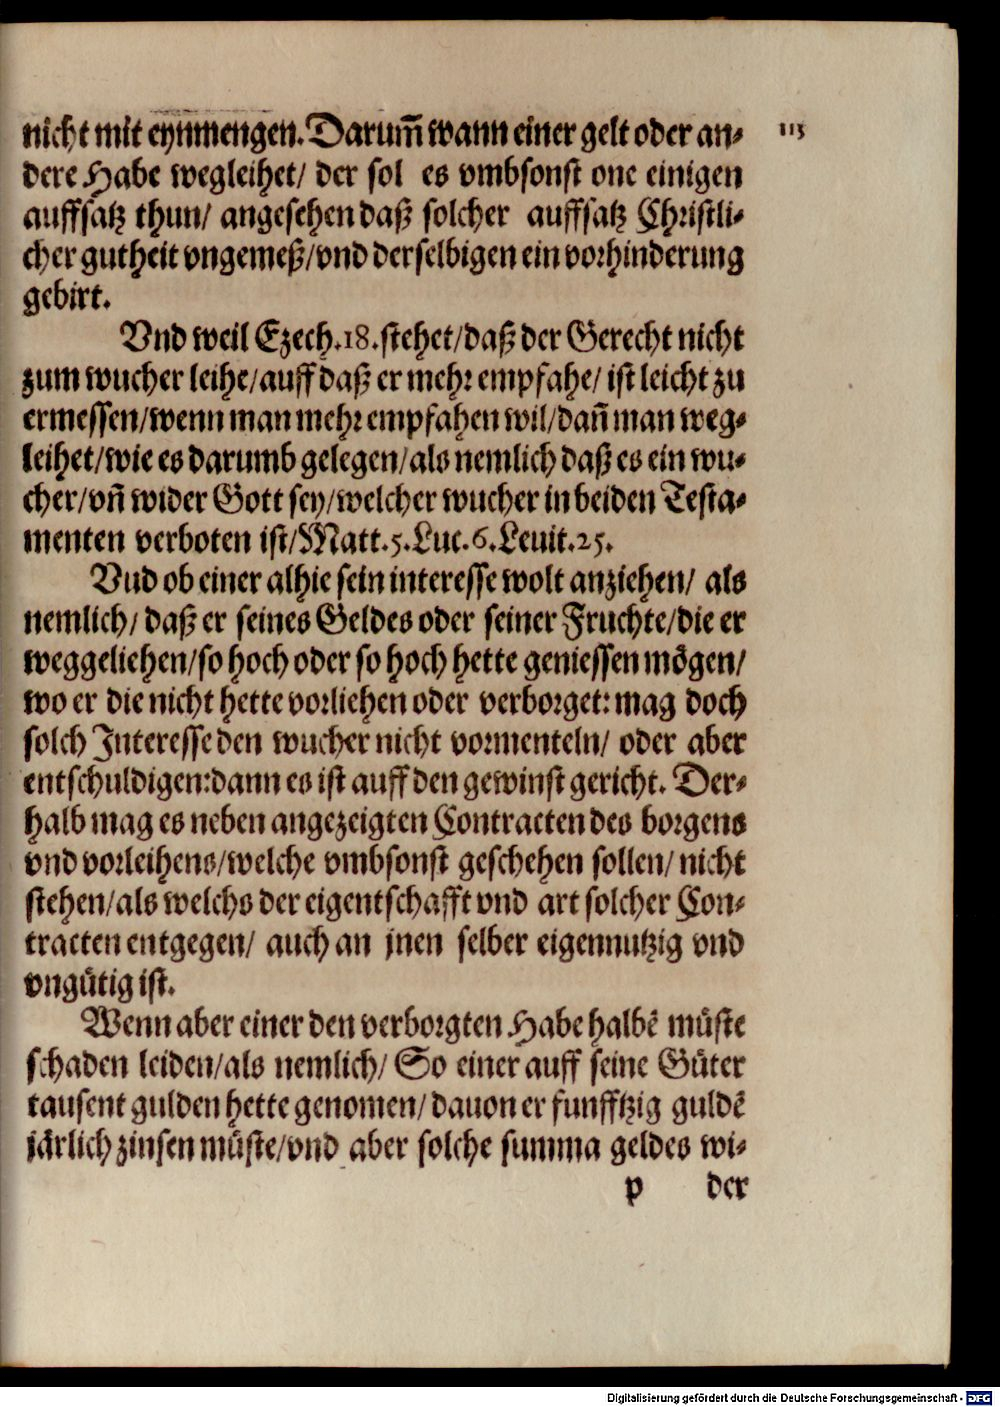 nicht mit eynmengen. Darum̃ wann einer gelt oder an- 113
dere Habe wegleihet/ der sol es vmbsonst one einigen
auffsatz thun/ angesehen daß solcher auffsatz Christli-
cher gutheit vngemeß/vnd derselbigen ein vorhinderung
gebirt.
Vnd weil Ezech.18.stehet/daß der Gerecht nicht
zum wucher leihe/auff daß er mehr empfahe/ ist leicht zu
ermessen/wenn man mehr empfahen wil/dañ man weg-
leihet/wie es darumb gelegen/als nemlich daß es ein wu-
cher/vñ wider Gott sey/welcher wucher in beiden Testa-
menten verboten ist/Matt.5.Luc.6.Leuit.25.
Vud ob einer alhie sein interesse wolt anziehen/ als
nemlich/ daß er seines Geldes oder seiner Fruchte/die er
weggeliehen/so hoch oder so hoch hette geniessen mögen/
wo er die nicht hette vorliehen oder verborget: mag doch
solch Interesse den wucher nicht vormenteln/ oder aber
entschuldigen:dann es ist auff den gewinst gericht. Der-
halb mag es neben angezeigten Contracten des borgens
vnd vorleihens/welche vmbsonst geschehen sollen/ nicht
stehen/als welchs der eigentschafft vnd art solcher Con-
tracten entgegen/ auch an jnen selber eigennutzig vnd
vngütig ist.
Wenn aber einer den verborgten Habe halbẽ müste
schaden leiden/als nemlich/ So einer auff seine Güter
tausent gulden hette genomen/ dauon er funfftzig guldẽ
järlich zinsen müste/vnd aber solche summa geldes wi-
p der
Digitalisierung gefördert durch die Deutsche Forschungsgemeinschaft - DFG